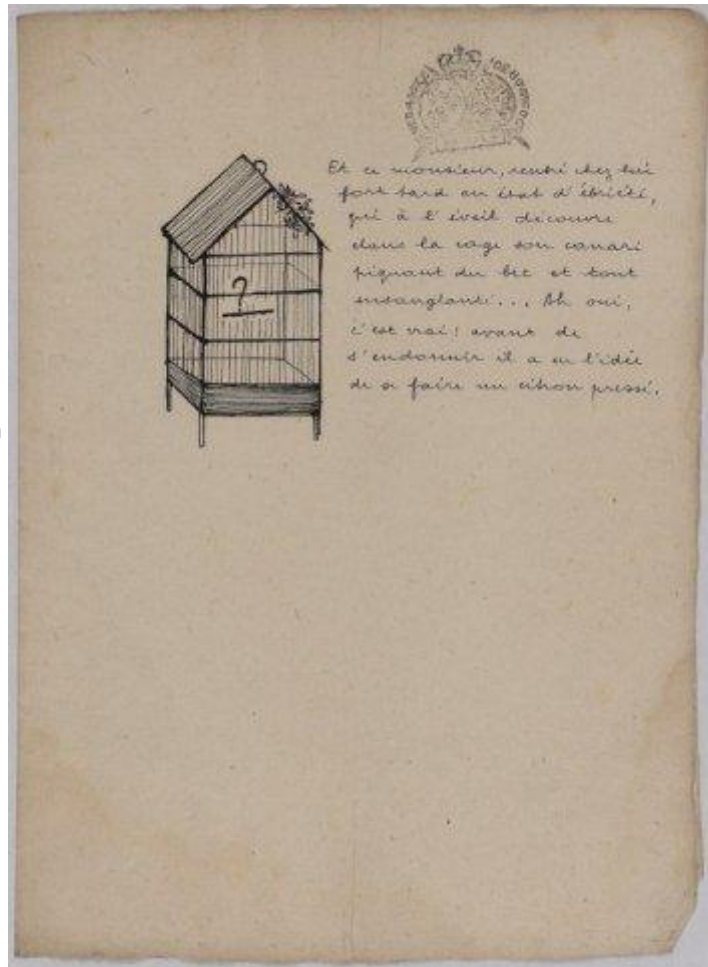 Et ce monsieur, rentré chez lui
fort tard en état d'ébriété,
qui à l'éveil découvre
dans la cage son canari
piquant du bec et tout
ensanglanté... Ah oui,
c'est vrai! avant de
s'endormir il a eu l'idée
de se faire un citron pressé.
?